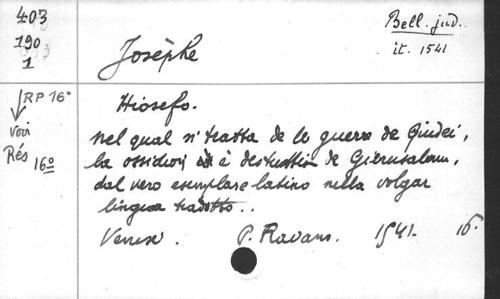 403
190
1
Josèphe
Bell. jud.
it. 1541
RP 16°
voir
Rés 16°
Hiosefo.
nel qual si tratta de le guerre de Giudei,
la ossidion e destruttion de Gierusalem,
dal vero esemplare latino nella volgar
lingua tradotto..
Venise. P. Ravano. 1541. 16.